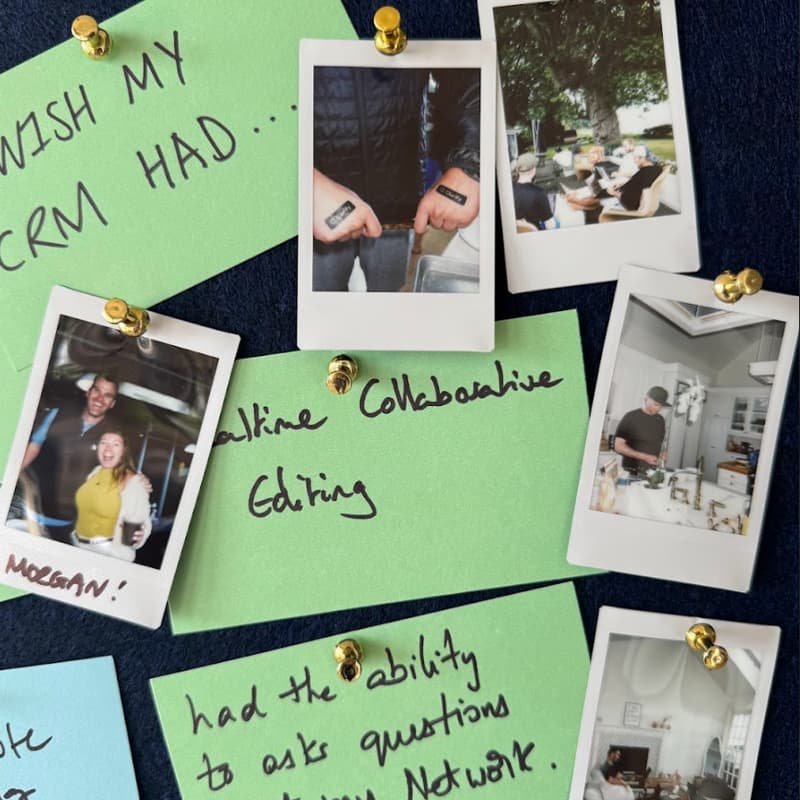 WISH MY
CRM HAD...
Realtime Collaborative
Editing
MORGAN!
had the ability
to ask questions
Network.